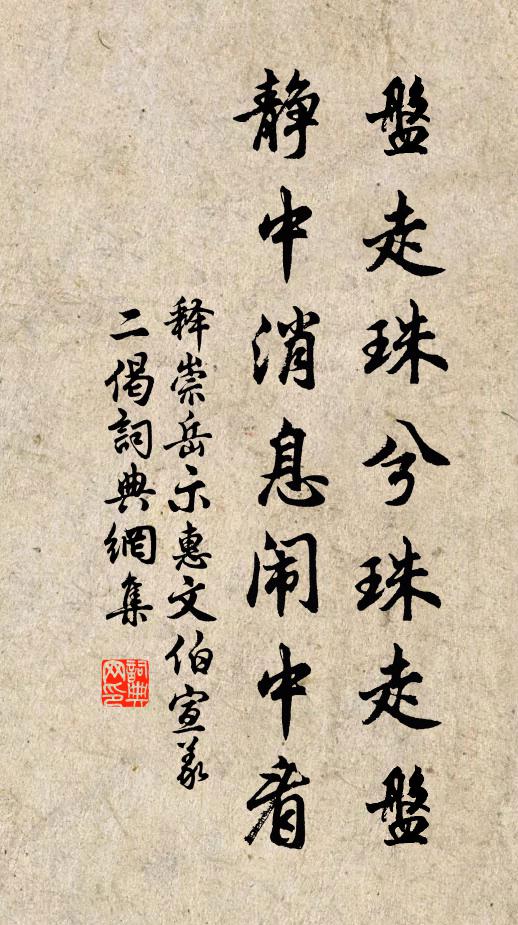 盤走珠兮珠走盤
静中消息闹中看
释崇岳示惠文伯宣義
二偈詞典網集
詞典
网印